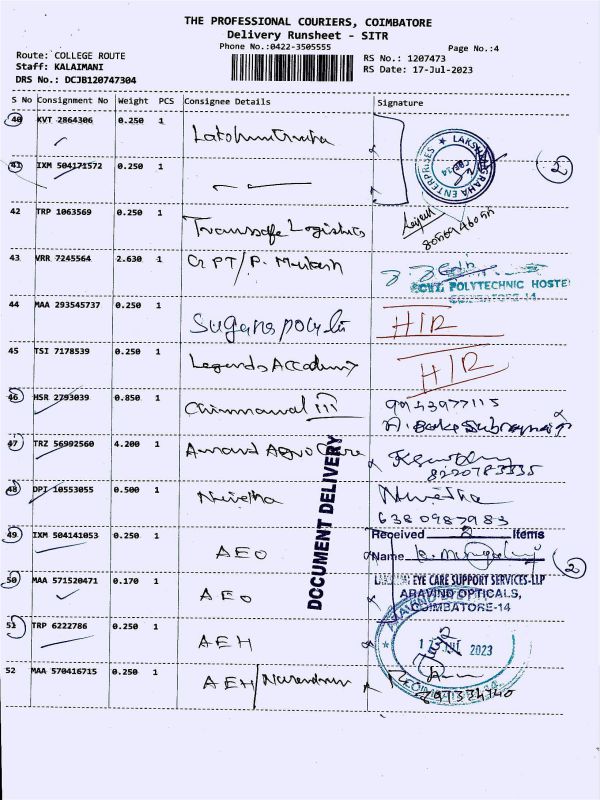 THE PROFESSIONAL COURIERS, COIMBATORE
Delivery Runsheet - SITR
Phone No.:0422-3505555
Page No.:4
Route: COLLEGE ROUTE
Staff: KALAIMANI
DRS No.: DCJB120747304
RS No.: 1207473
RS Date: 17-Jul-2023
S No Consignment No Weight PCS Consignee Details Signature
40 KVT 2864306 0.250 1
LAKSHMIGRAHA ENTERPRISES
41 IXM 504171572 0.250 1
2
42 TRP 1063569 0.250 1
Transsafe Logistics
43 VRR 7245564 2.630 1 GPT/P.
POLYTECHNIC HOSTE
COIMBATORE-14
44 MAA 293545737 0.250 1
H/R
45 TSI 7178539 0.250 1 Legends Accademy
H/R
46 HSR 2793039 0.850 1
9943977115
47 TRZ 56992560 4.200 1 Anand Agro Care
8220783335
48 DPI 10553055 0.500 1 Nivetha Nivetha
6380987983
DOCUMENT DELIVERY
49 IXM 504141053 0.250 1 AEO
Received 2 Items
Name
2
50 MAA 571520471 0.170 1 AEO
EYE CARE SUPPORT SERVICES-LLP
ARAVIND OPTICALS,
COIMBATORE-14
51 TRP 6222786 0.250 1 AEH
JUL 2023
52 MAA 570416715 0.250 1 AEH/Narendran